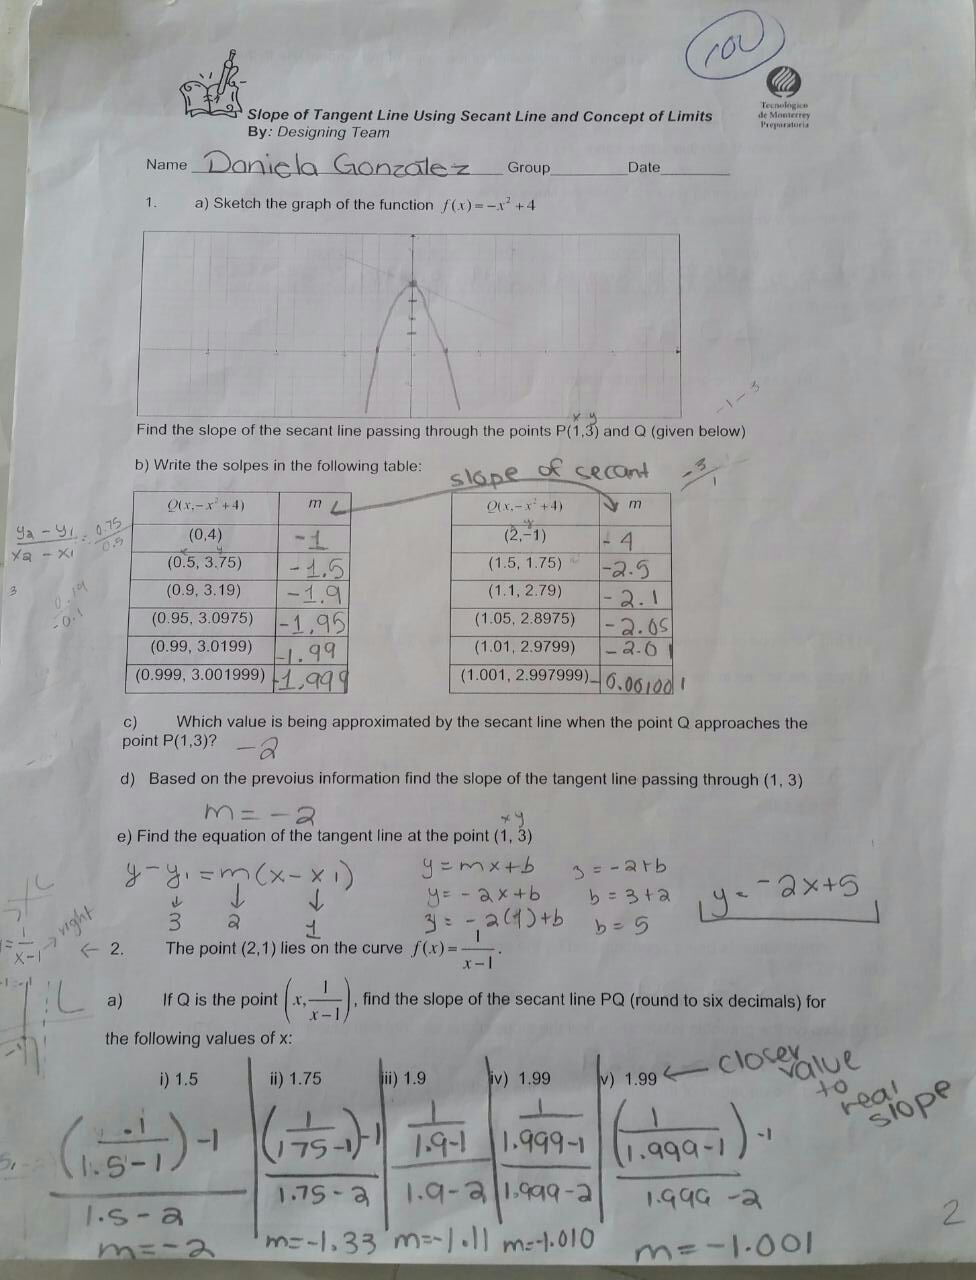 100
Tecnológico
de Monterrey
Preparatoria
Slope of Tangent Line Using Secant Line and Concept of Limits
By: Designing Team
Name Daniela González Group Date
1. a) Sketch the graph of the function f(x)=-x²+4
-1-3
x y
Find the slope of the secant line passing through the points P(1,3) and Q (given below)
-3/1
b) Write the solpes in the following table:
slope of secant
Q(x,-x²+4) m Q(x,-x²+4) m
y2 - y1 / x2 - x1 = 0.75 / 0.5
(0,4) -1 (2,-1) -4
(0.5, 3.75) -1.5 (1.5, 1.75) -2.5
3 0.19 / -0.1
(0.9, 3.19) -1.9 (1.1, 2.79) -2.1
(0.95, 3.0975) -1.95 (1.05, 2.8975) -2.05
(0.99, 3.0199) -1.99 (1.01, 2.9799) -2.01
(0.999, 3.001999) -1.999 (1.001, 2.997999) -0.001001
c) Which value is being approximated by the secant line when the point Q approaches the
point P(1,3)? -2
d) Based on the prevoius information find the slope of the tangent line passing through (1, 3)
m = -2
x y
e) Find the equation of the tangent line at the point (1, 3)
y - y1 = m(x - x1) y = mx+b 3 = -2+b
3 2 1 y = -2x+b b = 3+2 y = -2x+5
3 = -2(1)+b b = 5
= 1/x-1 → right
← 2. The point (2,1) lies on the curve f(x)= 1/x-1.
a) If Q is the point (x, 1/x-1), find the slope of the secant line PQ (round to six decimals) for
the following values of x:
i) 1.5 ii) 1.75 iii) 1.9 iv) 1.99 v) 1.99 ← closer value to real slope
(1/1.5-1)-1 (1/1.75-1)-1 1/1.9-1 1/1.999-1 (1/1.999-1)-1
1.5-2 1.75-2 1.9-2 1.999-2 1.999-2
m=-2 m=-1.33 m=-1.11 m=-1.010 m=-1.001
2